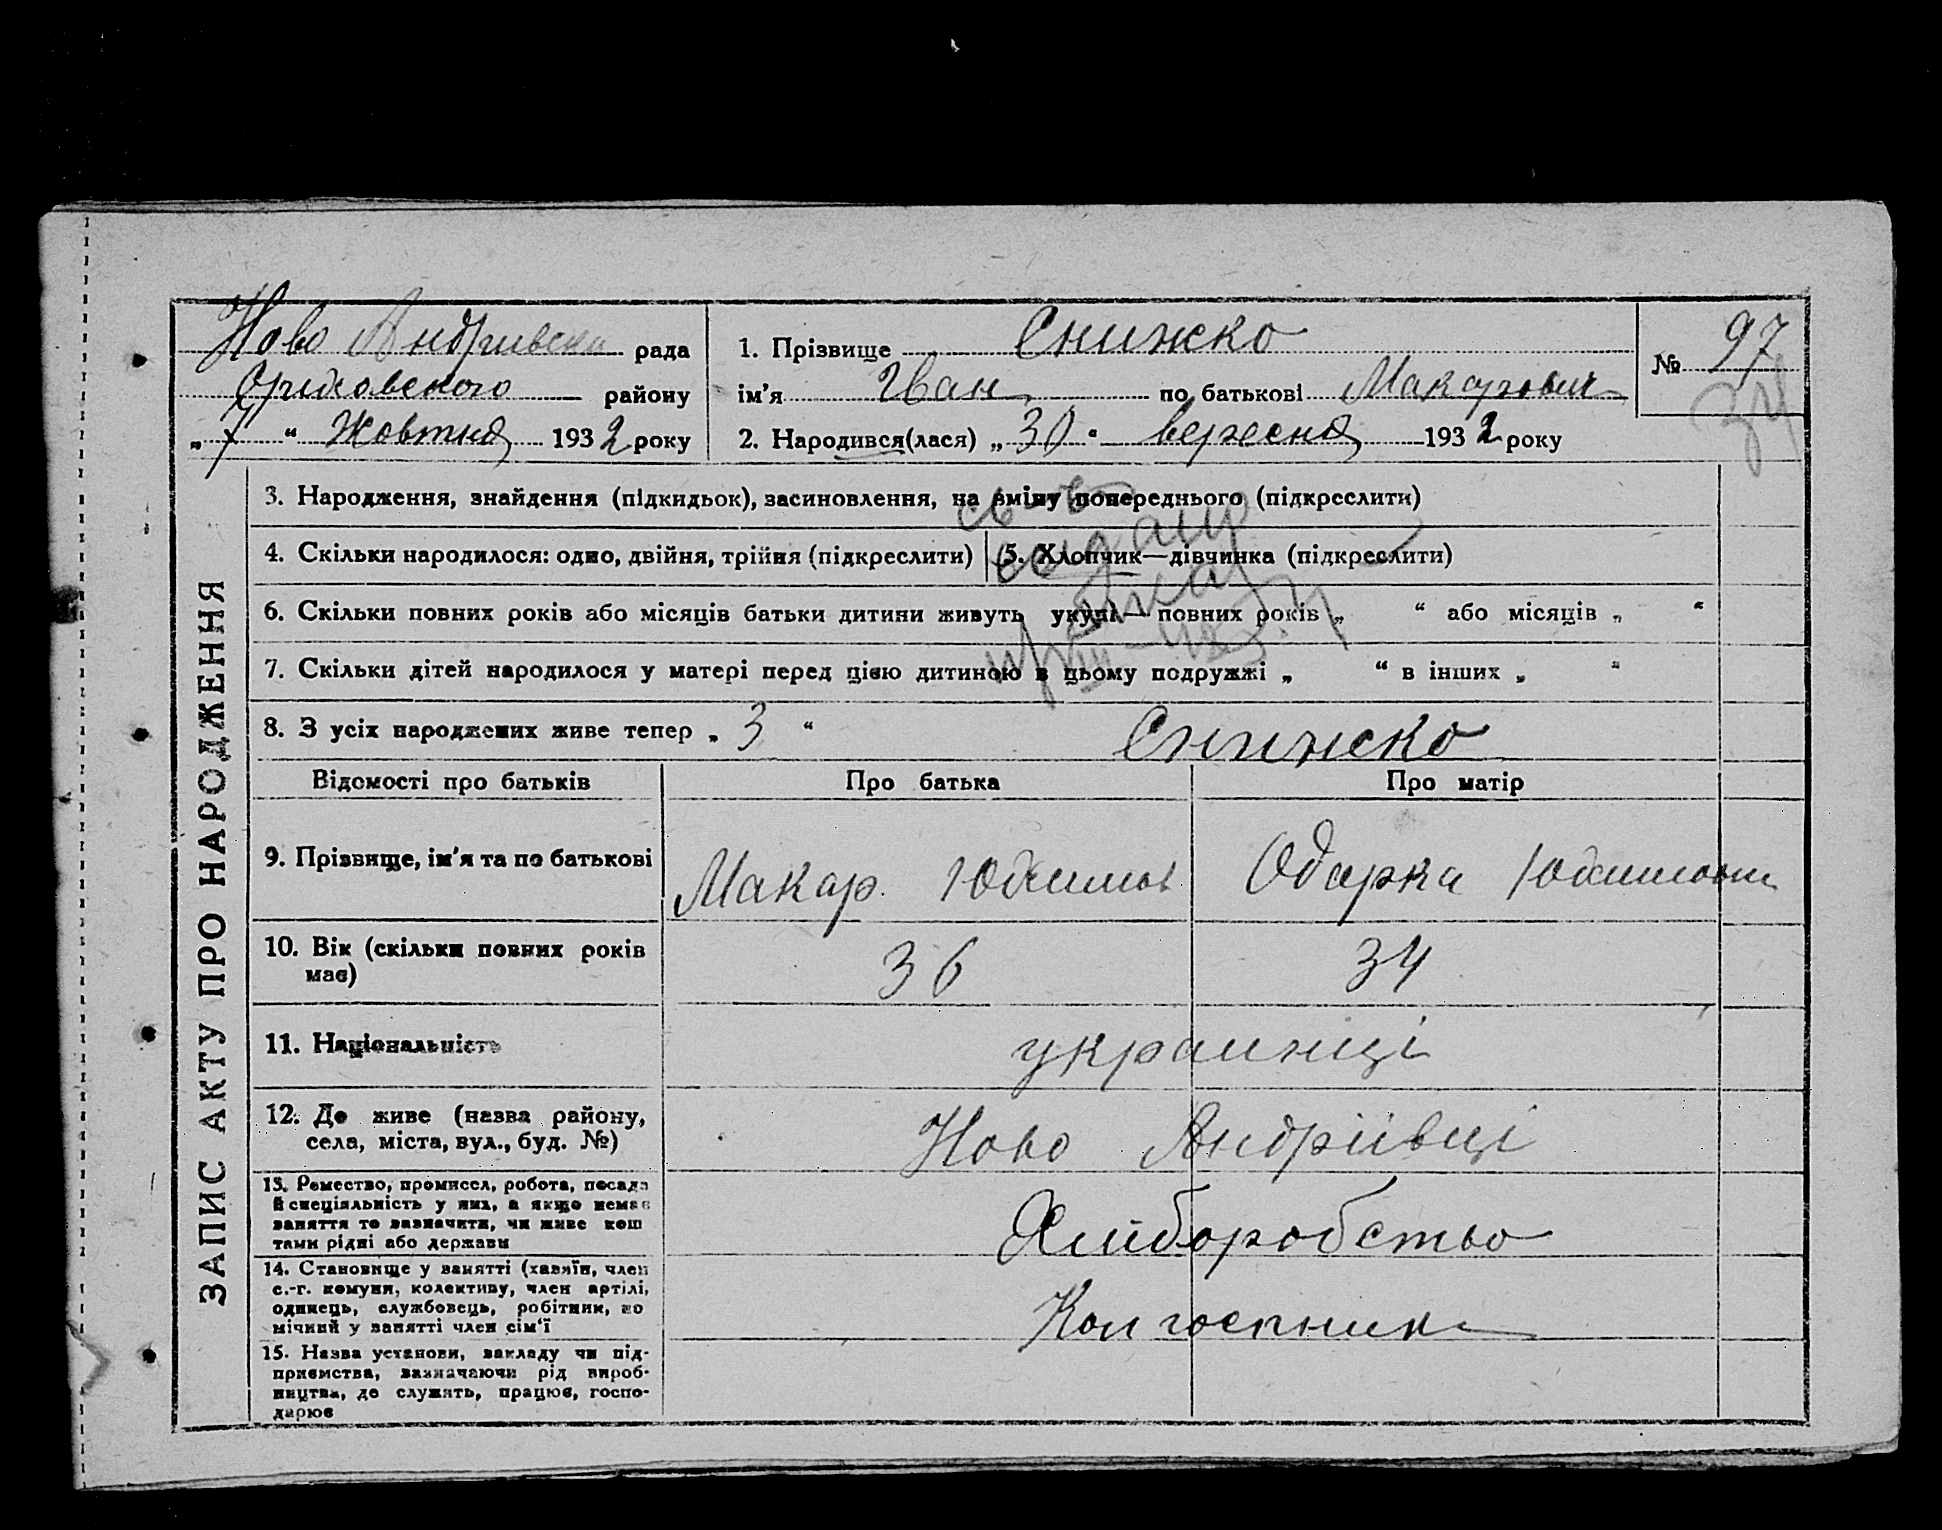 ЗАПИС АКТУ ПРО НАРОДЖЕННЯ
Ново Андриевска рада
Оріховського району
„ 7 “ Жовтня 1932 року
1. Прізвище Снижко
ім'я Іван по батькові Макарович
2. Народився(лася) „ 30 “ вересня 1932 року
№ 97
34
3. Народження, знайдення (підкидьок), засиновлення, на зміну попереднього (підкреслити)
4. Скільки народилося: одно, двійня, трійня (підкреслити)
5. Хлопчик—дівчинка (підкреслити)
6. Скільки повних років або місяців батьки дитини живуть укупі— повних років „ “ або місяців „ “
7. Скільки дітей народилося у матері перед цією дитиною в цьому подружжі „ “ в інших „ “
8. З усіх народжених живе тепер „ 3 “
Снижко
Відомості про батьків
Про батька
Про матір
9. Прізвище, ім'я та по батькові
Макар
Одарка
10. Вік (скільки повних років
має)
36
34
11. Національність
украинці
12. Де живе (назва району,
села, міста, вул., буд. №)
Ново Андріївці
13. Ремество, промисел, робота, посада
й спеціяльність у них, а якщо немає
заняття то зазначити, чи живе кош
тами рідні або держави
Хлиборобство
14. Становище у занятті (хазяїн, член
с.-г. комуни, колективу, член артілі,
одинець, службовець, робітник, по
мічний у занятті член сім'ї
Колгоспник
15. Назва установи, закладу чи під-
приємства, зазначаючи рід вироб-
ництва, де служать, працює, госпо-
дарює